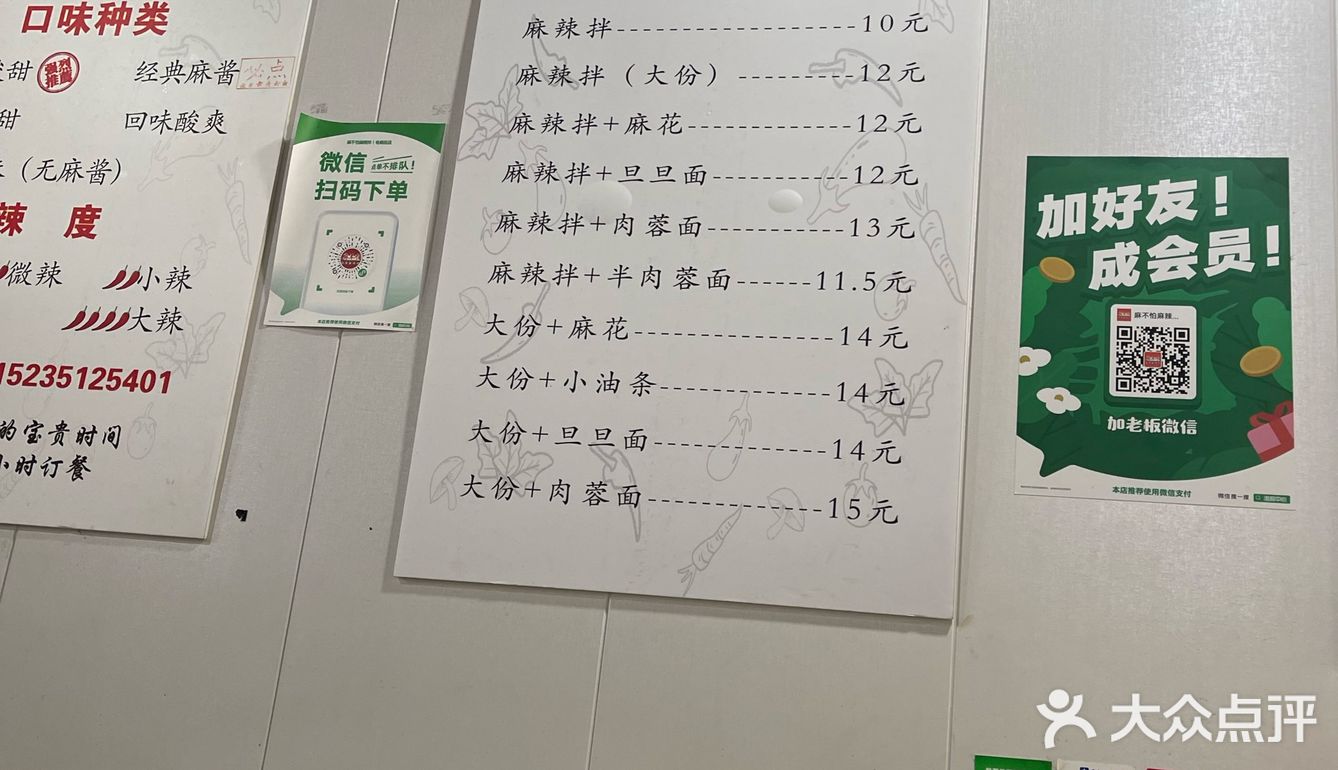 口味种类
甜
强烈推荐
经典麻酱
必点
甜
回味酸爽
（无麻酱）
辣 度
微辣
小辣
大辣
15235125401
的宝贵时间
小时订餐
微信 点单不排队！
扫码下单
本店推荐使用微信支付
微信搜一搜
麻辣拌 10元
麻辣拌（大份） 12元
麻辣拌+麻花 12元
麻辣拌+旦旦面 12元
麻辣拌+肉蓉面 13元
麻辣拌+半肉蓉面 11.5元
大份+麻花 14元
大份+小油条 14元
大份+旦旦面 14元
大份+肉蓉面 15元
加好友！
成会员！
麻不怕麻辣...
加老板微信
本店推荐使用微信支付
微信搜一搜
大众点评